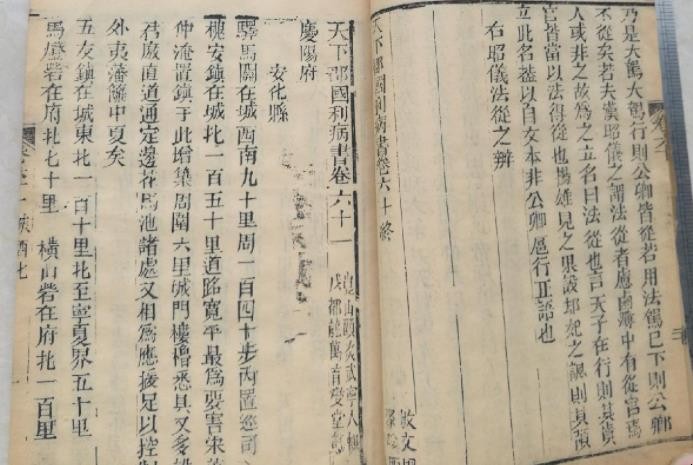 乃是大駕大駕行則公卿皆從若用法駕已下則公卿
不從矣若夫漢昭儀之謂法從者應鹵簿中有從官焉
人或非之故爲之立名目法從也言天子在行則其責
官皆當以法得從也揚雄見之果設却妃之
立此名蓋以自文本非公卿扈行正語也
右昭儀法從之辨
天下郡國利病書卷六十終
天下郡國利病書卷六十一
崑山顧炎武寧人輯
成都龍萬育燮堂
慶陽府
安化縣
驛馬關在城西南九十里周一百四十步內置巡司
槐安鎮在城北一百五十里道路寬平最爲要害宋范
仲淹置鎮于此增築周圍六里城門樓櫓悉具又多
君廠直道通定邊花馬池諸處又相爲應援足以控制
外夷藩籬中夏矣
五友鎮在城東北一百十里北至寧夏界五十里
馬磴砦在府北七十里 橫山砦在府北一百里